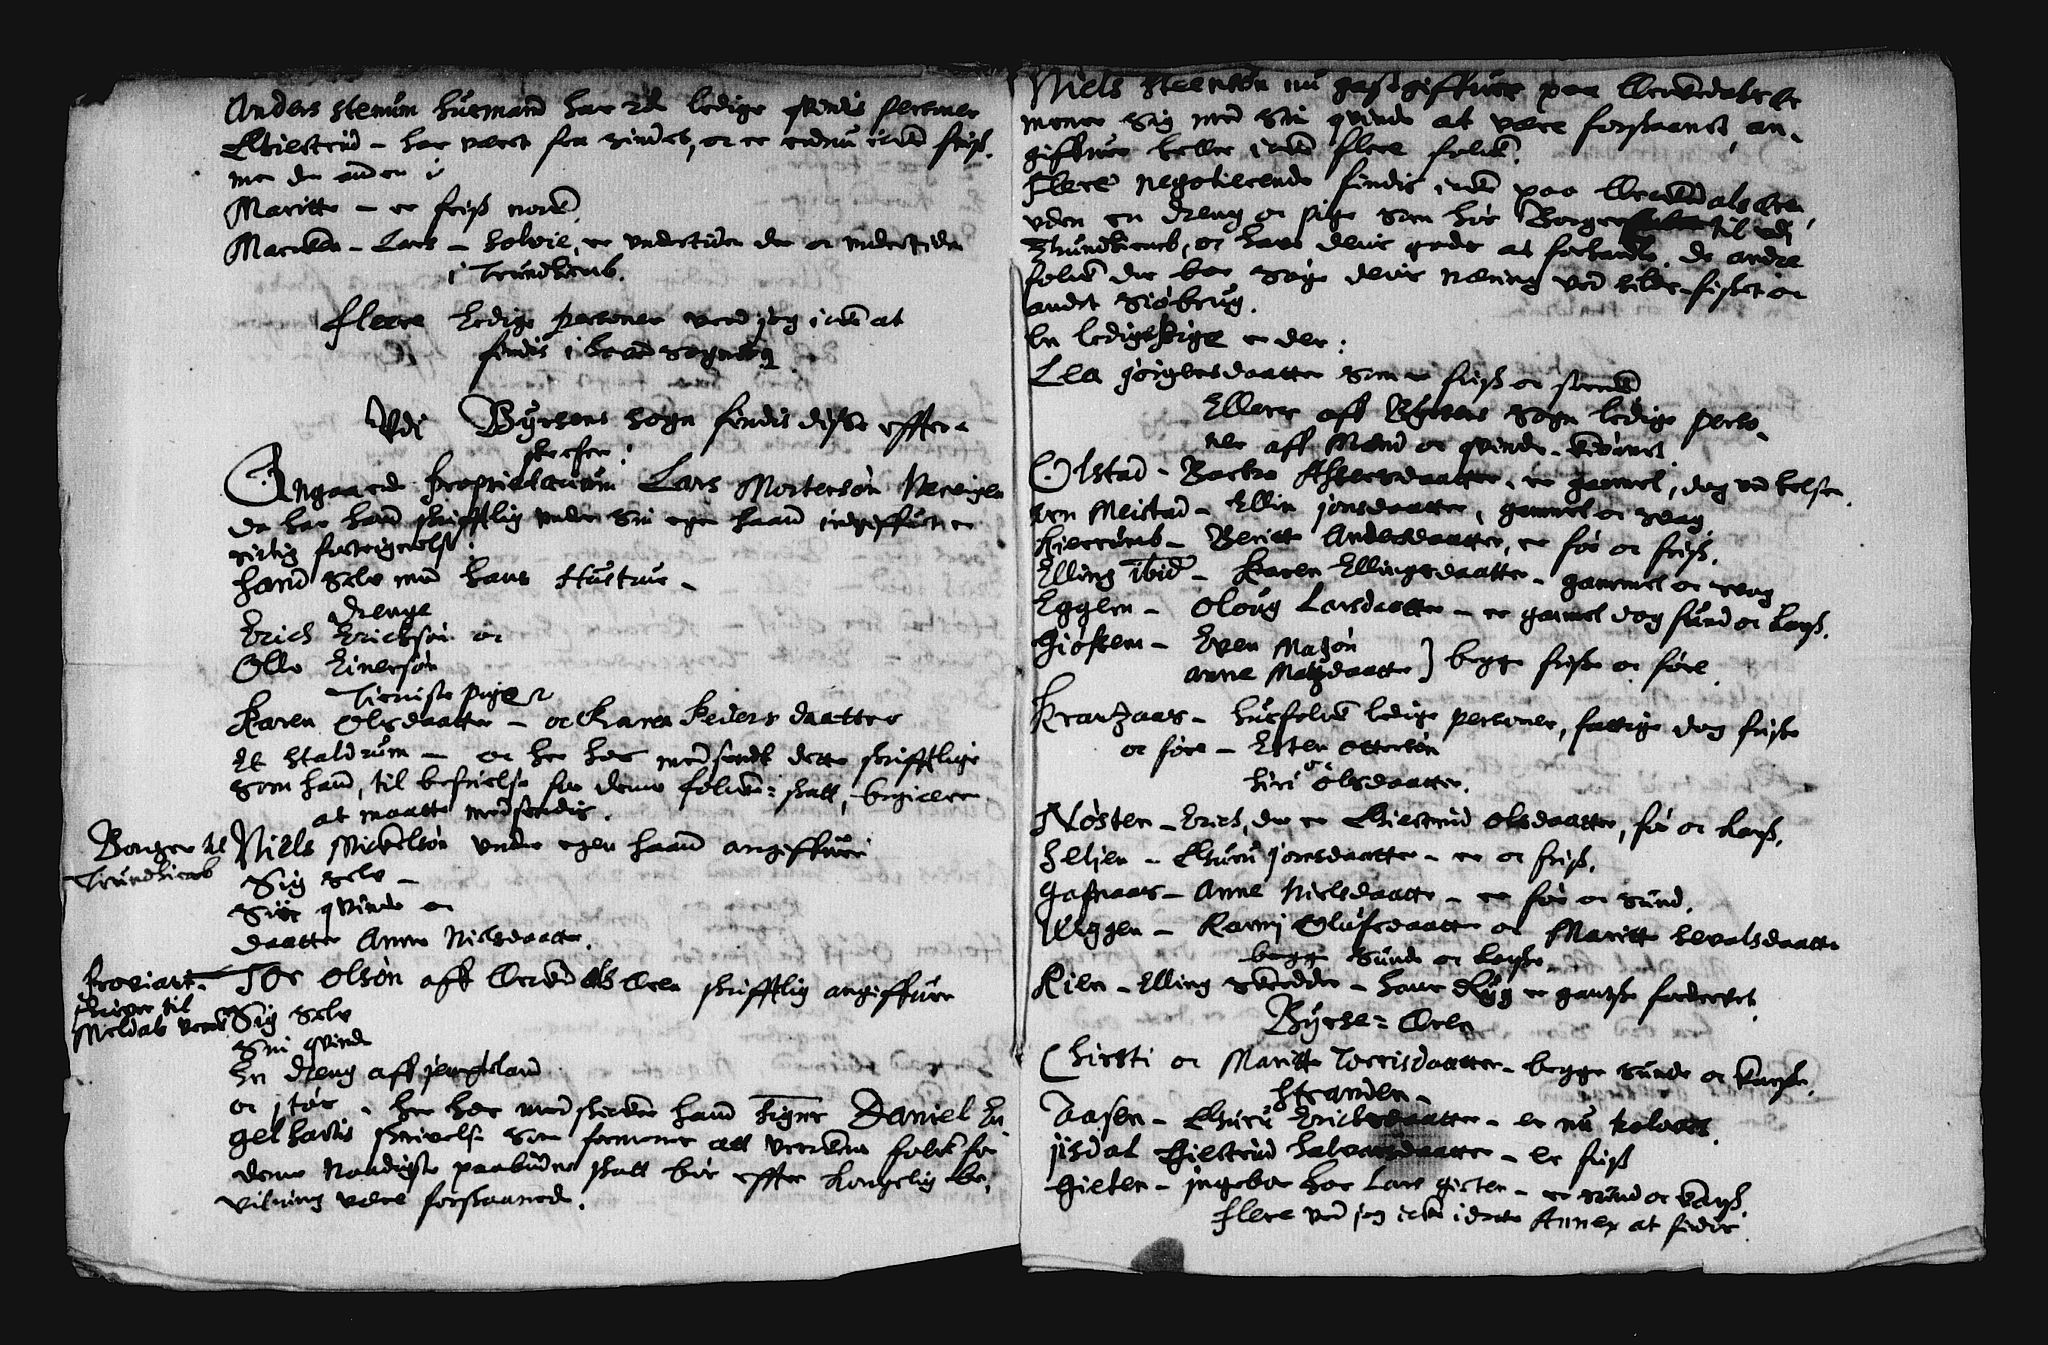 Anders Stenum huusmand har 2de ledige qvindis personer
Giestrud - har veret fra sindet, oc er endnu icke frisk.
men den anden
Maritte - er frisk nock
Marcken - Lars - Solvie, er undertiden der oc undertiden
i Trundhiemb.
fleere ledige personer veed jeg icke at
findis i sognet
Udi Byrsens Sogn findis disse effter-
skrefne:
Angaaende proprietarium Lars Mortensøn
da har hand skrifftlig under sin egen haand indgiffuen
rictig fortegnelse:
hand Selv med hans Hustrue -
Drenge
Erich Erichsøn oc
Olle Einersøn
Tieniste piger
Karen Olsdaatter - oc Karen Pedersdaatter
Et Staldrum - oc her hos med sendt dette skrifftlige
som hand, til befrielse for denne folcke-skatt, begierer
at maatte medsendis.
Borger til
Trundhiemb
Niels Mickelsøn under egen haand angiffuer
Sig Selv -
Siin qvinde oc
daatter Anne Nielsdaatter.
Proviant-
skriver til
Meldals verck
Tor Olsøn aff Ørckedals Øren skrifftlig angiffuer
Sig Selv
Sin qvinde
En dreng aff jempteland
oc , her hos med skicker hand Signr Daniel En-
gelhartis skrivelse som formener att verckens folck for
denne Naadigste paabudne skatt bør effter Kongelig be-
vilning være forskaaned.
Niels Steensøn nu gastgiffuer paa Ørckedals Ør
mener Sig med Sin qvinde at være forskaanet, an-
giffuer eller icke flere folck.
Flere negotierende findis icke paa Ørckedals Ørn
uden en dreng oc pige som hør Borger til udi
Trundhiemb, oc have deris gods at forhandle. De andre
folck der boe søge deris næring ved silde-fisket oc
andet Siøbrug.
En ledig pige er der:
Lea jørgensdaatter som er frisk oc sterck
Ellers aff Byrsens Sogn ledige perso-
ner aff Mand oc qvinde-kiønnet
Olstad - Barbro Asbersdaatter, er gammel, dog ved helse.
ven Meistad - Ellin jonsdaatter, gammel oc svag
Kierrumb - Beritte Andersdaatter, er før oc frisk.
Elling ibid - Karen Ellingsdaatter - gammel oc svag
Egglen - Oloug Larsdaatter - er gamel dog sund oc karsk.
Giøstem - Even Matzøn
Anne Matzdaatter } begge friske oc føre.
Krantzaas - husfolck ledige personer, fattige dog friske
oc føre - Esten Ottersøn
oc
Siri Olsdaatter.
Nøsten - Erich, der er Giertrud Olsdaatter, før oc karsk.
Seljen - Guru jonsdaatter - er oc frisk.
Gafnaas - Anne Nielsdaatter - er før oc sund.
Viggen - Karni Olufsdaatter oc Maritte Sevalsdaatter
begge sunde oc karske.
Kilen - Elling Skredder - hans Ryg er gantske fordervet
Byrse-Ørn
Chirsti oc Maritte Torrisdaatter - begge sunde oc karske.
Stranden -
Aasen - Guru Erichsdaatter - er nu
jisdal Giertrud Halvorsdaatter - er frisk
Gielten - jngebor hos Lars gielten - er sund oc karsk.
Flere ved jeg icke i dette Annex at findis.